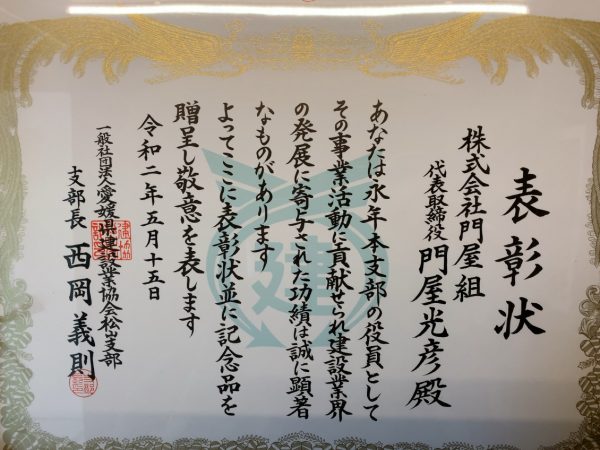 表彰状
株式会社門屋組
代表取締役 門屋光彦殿
あなたは永年本支部の役員として
その事業活動に貢献せられ建設業界
の発展に寄与された功績は誠に顕著
なものがあります
よってここに表彰状並に記念品を
贈呈し敬意を表します
令和二年五月十五日
一般社団法人愛媛県建設業協会松山支部
支部長 西岡義則
建